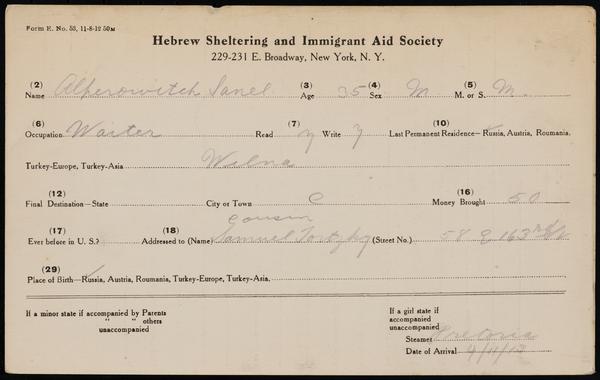 Form E. No. 53, 11-8-12 50M
Hebrew Sheltering and Immigrant Aid Society
229-231 E. Broadway, New York, N. Y.
(2) Name Alperowitch Sanel (3) Age 35 (4) Sex M (5) M. or S. M.
(6) Occupation Waiter (7) Read y Write y (10) Last Permanent Residence—Russia, Austria, Roumania,
Turkey-Europe, Turkey-Asia Wilna
(12) Final Destination—State City or Town C (16) Money Brought 50
cousin
(17) Ever before in U. S.? (18) Addressed to (Name) Samuel (Street No.) 58 E 163rd St
(29) Place of Birth—Russia, Austria, Roumania, Turkey-Europe, Turkey-Asia.
If a minor state if accompanied by Parents
" " others
unaccompanied
If a girl state if
accompanied
unaccompanied
Steamer Pretoria
Date of Arrival 4/11/13